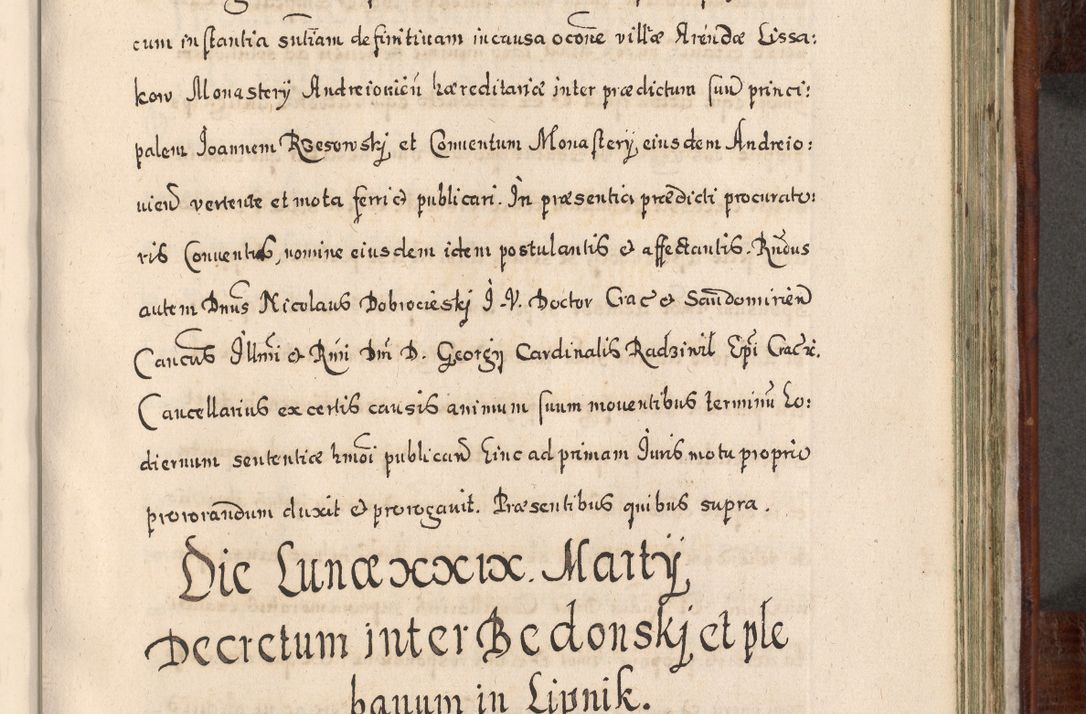 cum instantia sntiam definitiuam in causa ōcone villæ Arendæ Lissa:
kow Monastery Andreiouien hæreditariæ inter prædictum suu princi:
palem Joannem Rzesowskj, et Conuentum Monastery, eiusdem Andreio:
uien vertente et mota ferri et publicari. In præsentia prædicti procurato:
ris Conuentus, nomine eiusdem idem postulantis et affectantis. Rndus
autem Dnus Nicolaus Dobrocieskj J. V. Doctor Crac et Sandomirien
Cancus Illmi et Rmi Dni D. Georgy Cardinalis Radziwil Epi Cracx.
Cancellarius ex certis causis animum suum mouentibus terminu ho:
diernum sententiæ hmoi publican hinc ad primam Juris motu proprio
prororandum duxit et prorogauit. Præsentibus quibus supra.
Die Lunæ xxix. Martÿ
Decretum inter Bedonskj et ple
banum in Lipnik.